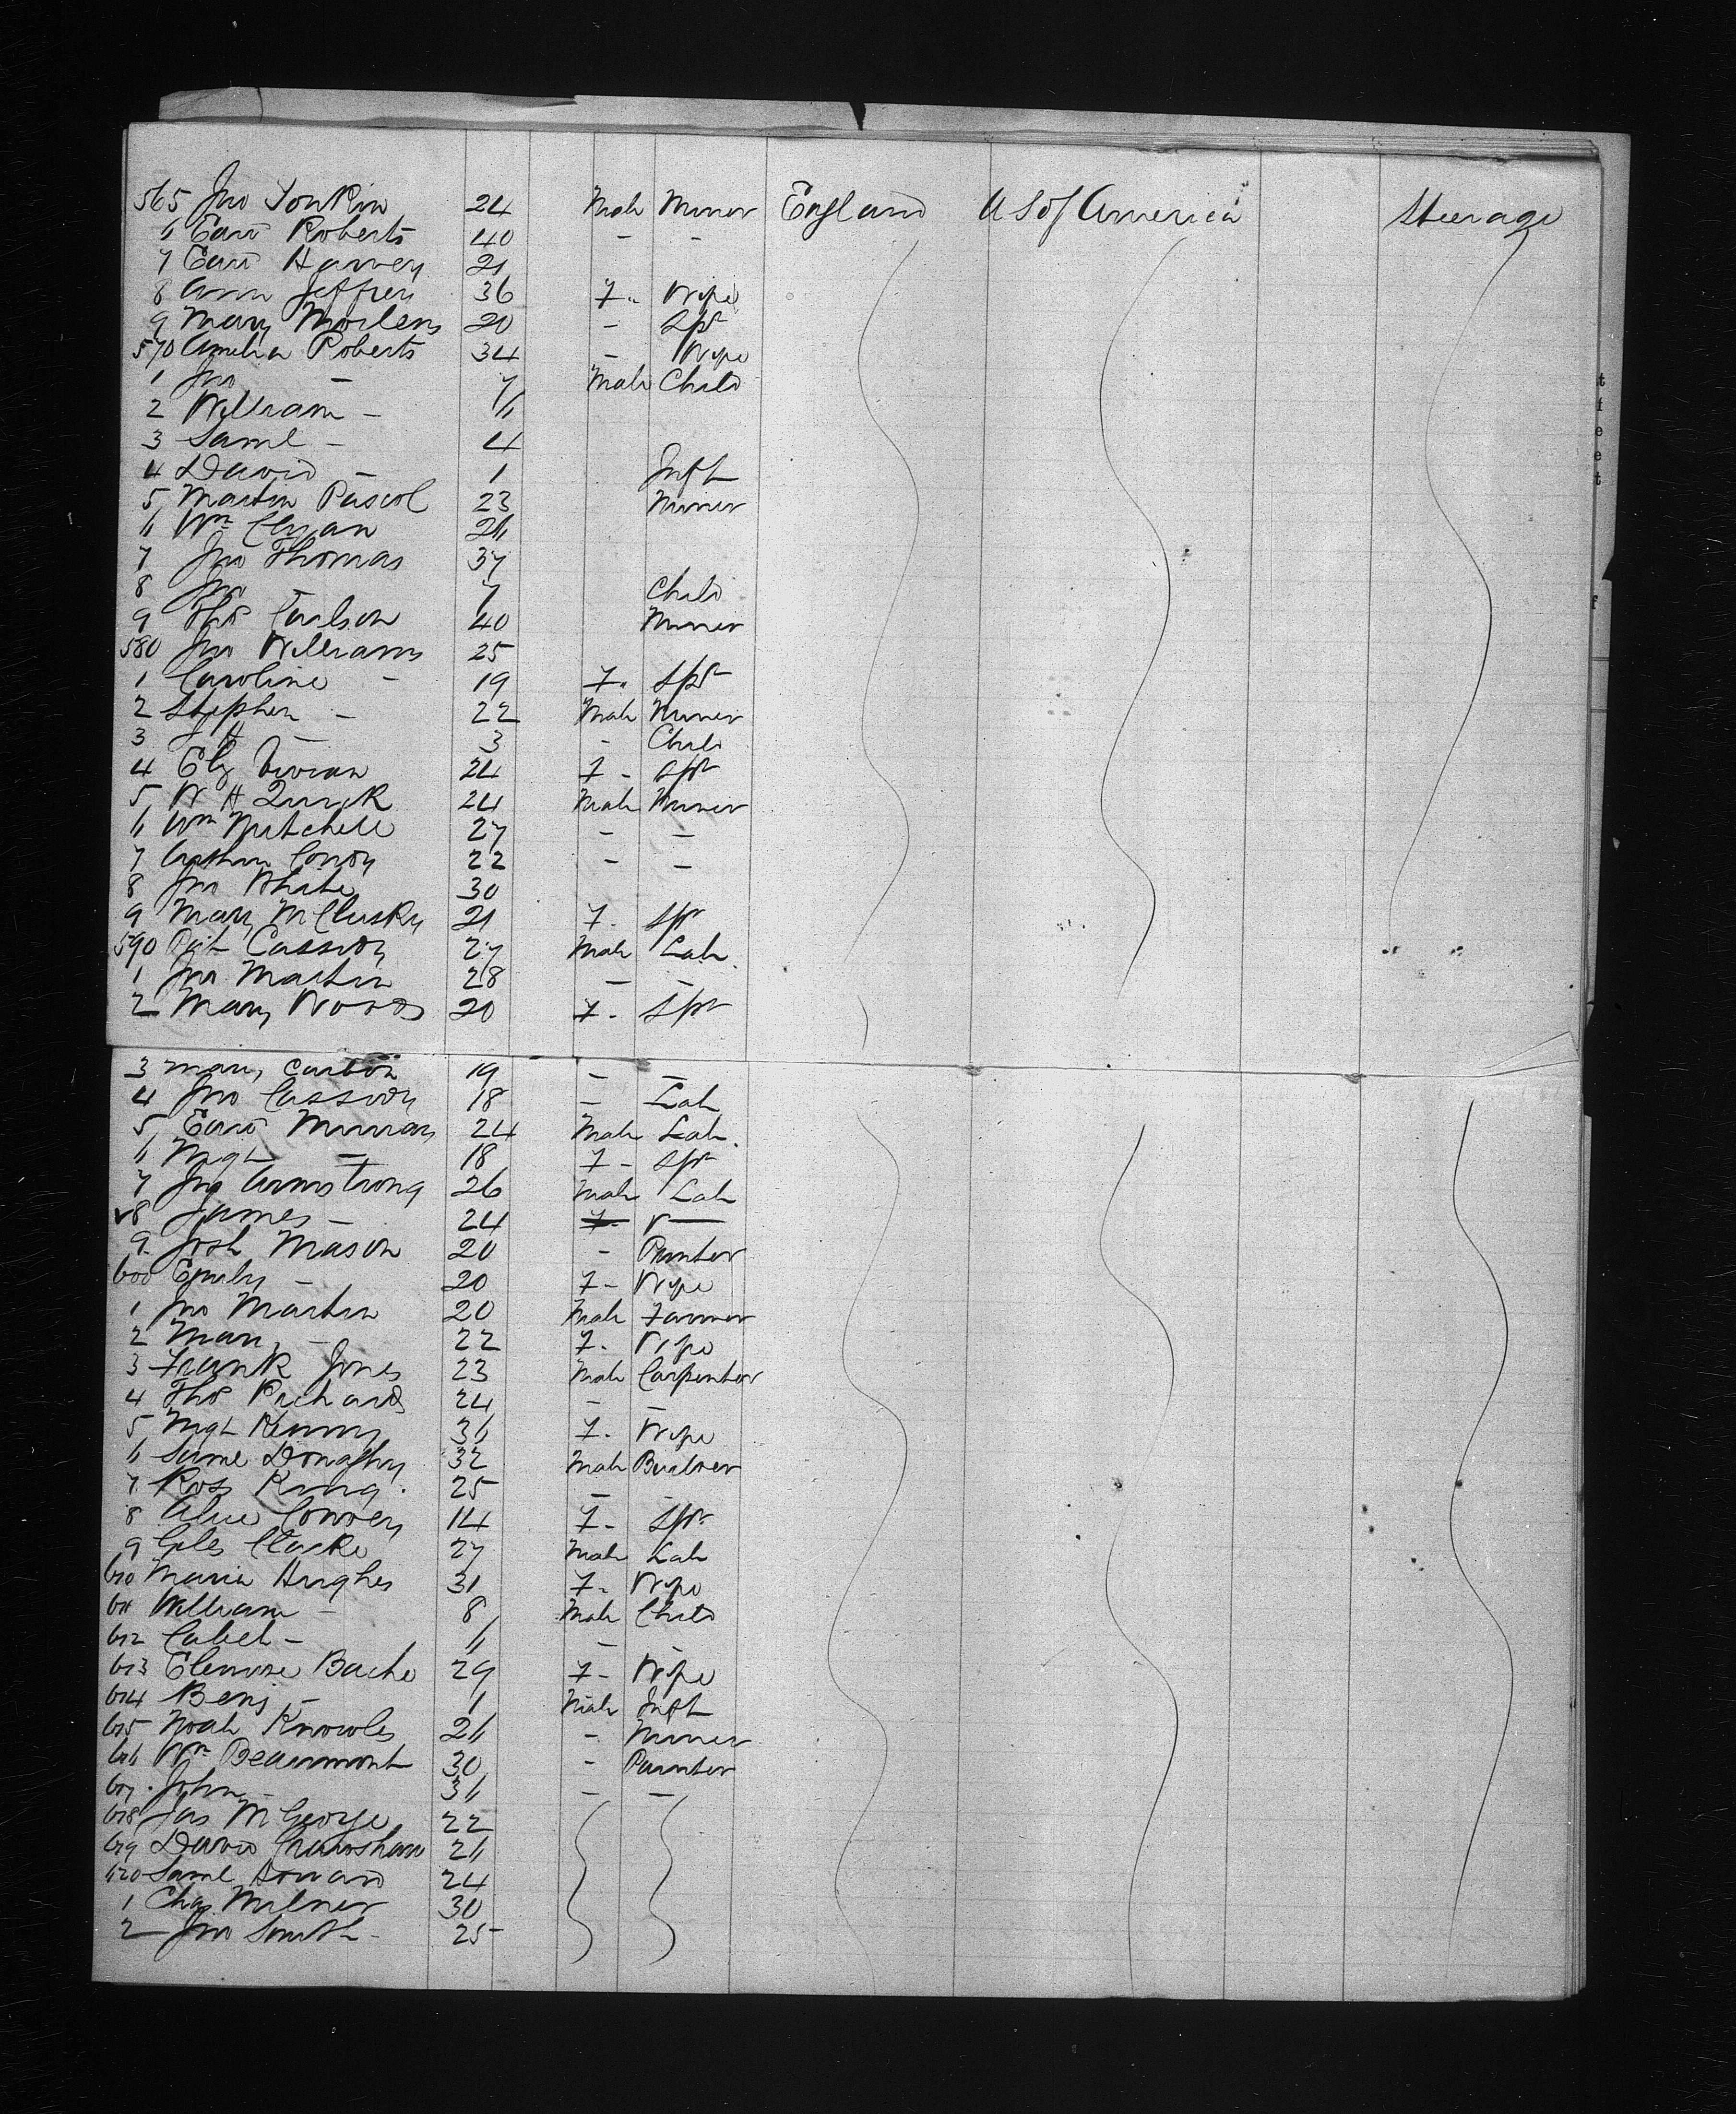 565 Jno Tonkin 24 Male Miner England U S of America Steerage
6 Edwd Roberts 40 - -
7 Edwd Harvey 21
8 Ann Jeffrey 36 F. Wife
9 Mary 20 - Spr
570 Amelia Roberts 34 - Wife
1 Jno - 7 Male Child
2 William - 6
3 Saml - 4
4 David - 1 Inft
5 Martin Pascol 23 Miner
6 Wm 26
7 Jno Thomas 37
8 Jno - 7 Child
9 Thos Carlson 40 Miner
580 Jno Williams 25
1 Caroline - 19 F. Spr
2 Stephen - 22 Male Miner
3 J H - 3 - Child
4 Eliz Vivian 24 F - Spr
5 W H Quick 24 Male Miner
6 Wm Mitchell 27 - -
7 Arthur Condy 22 - -
8 Jno White 30
9 Mary McClusky 21 F. Spr
590 Pat Cassidy 27 Male Lab.
1 Jno Martin 28 - -
2 Mary Woods 20 F. Spr
3 Mary 19 - -
4 Jno Cassidy 18 - Lab
5 Edwd Murray 24 Male Lab.
6 Mgt - 18 F - Spr
7 Jno Armstrong 26 Male Lab
8 James - 24
9 Josh Mason 20 - Painter
600 Emily - 20 F - Wife
1 Jno Martin 20 Male Farmer
2 Mary - 22 F. Wife
3 Frank Jones 23 Male Carpenter
4 Thos Richards 24 - -
5 Mgt Kenny 36 F. Wife
6 Saml Donaghy 32 Male Builder
7 Ross King. 25 - -
8 Alice Conroy 14 F - Spr
9 Giles Clarke 27 Male Lab
610 Maria Hughes 31 F. Wife
611 William - 8 Male Child
612 Caleb - 6 - -
613 Elenore Bache 29 F - Wife
614 Benj - 1 Male Inft
615 Noah Knowles 26 - Miner
616 Wm Beaumont 30 - Painter
617 John - 36 - -
618 Jas McGeorge 22
619 David Crawshaw 26
620 Saml Howard 24
1 Chas Milner 30
2 Jno Smith 25